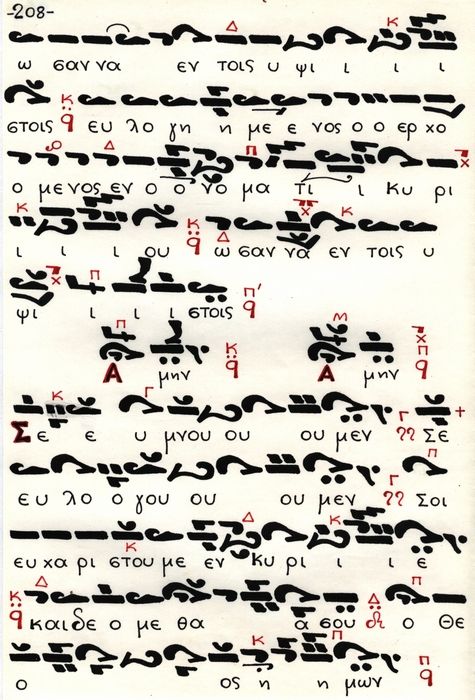 -208-
ω σαν να εν τοις υ ψι ι ι ι
στοις ευ λο γη η με ε νος ο ο ερ χο
ο με νος εν ο ο νο μα τι ι Κυ ρι
ι ι ι ου ω σαν να εν τοις υ
ψι ι ι ι στοις
Α μην Α μην
Σε ε ε υ μνου ου ου μεν Σε
ευ λο ο γου ου ου μεν Σοι
ευ χα ρι στου με εν κυ ρι ι ι ε
και δε ο με θα α σου ο Θε
ο ος η η μων